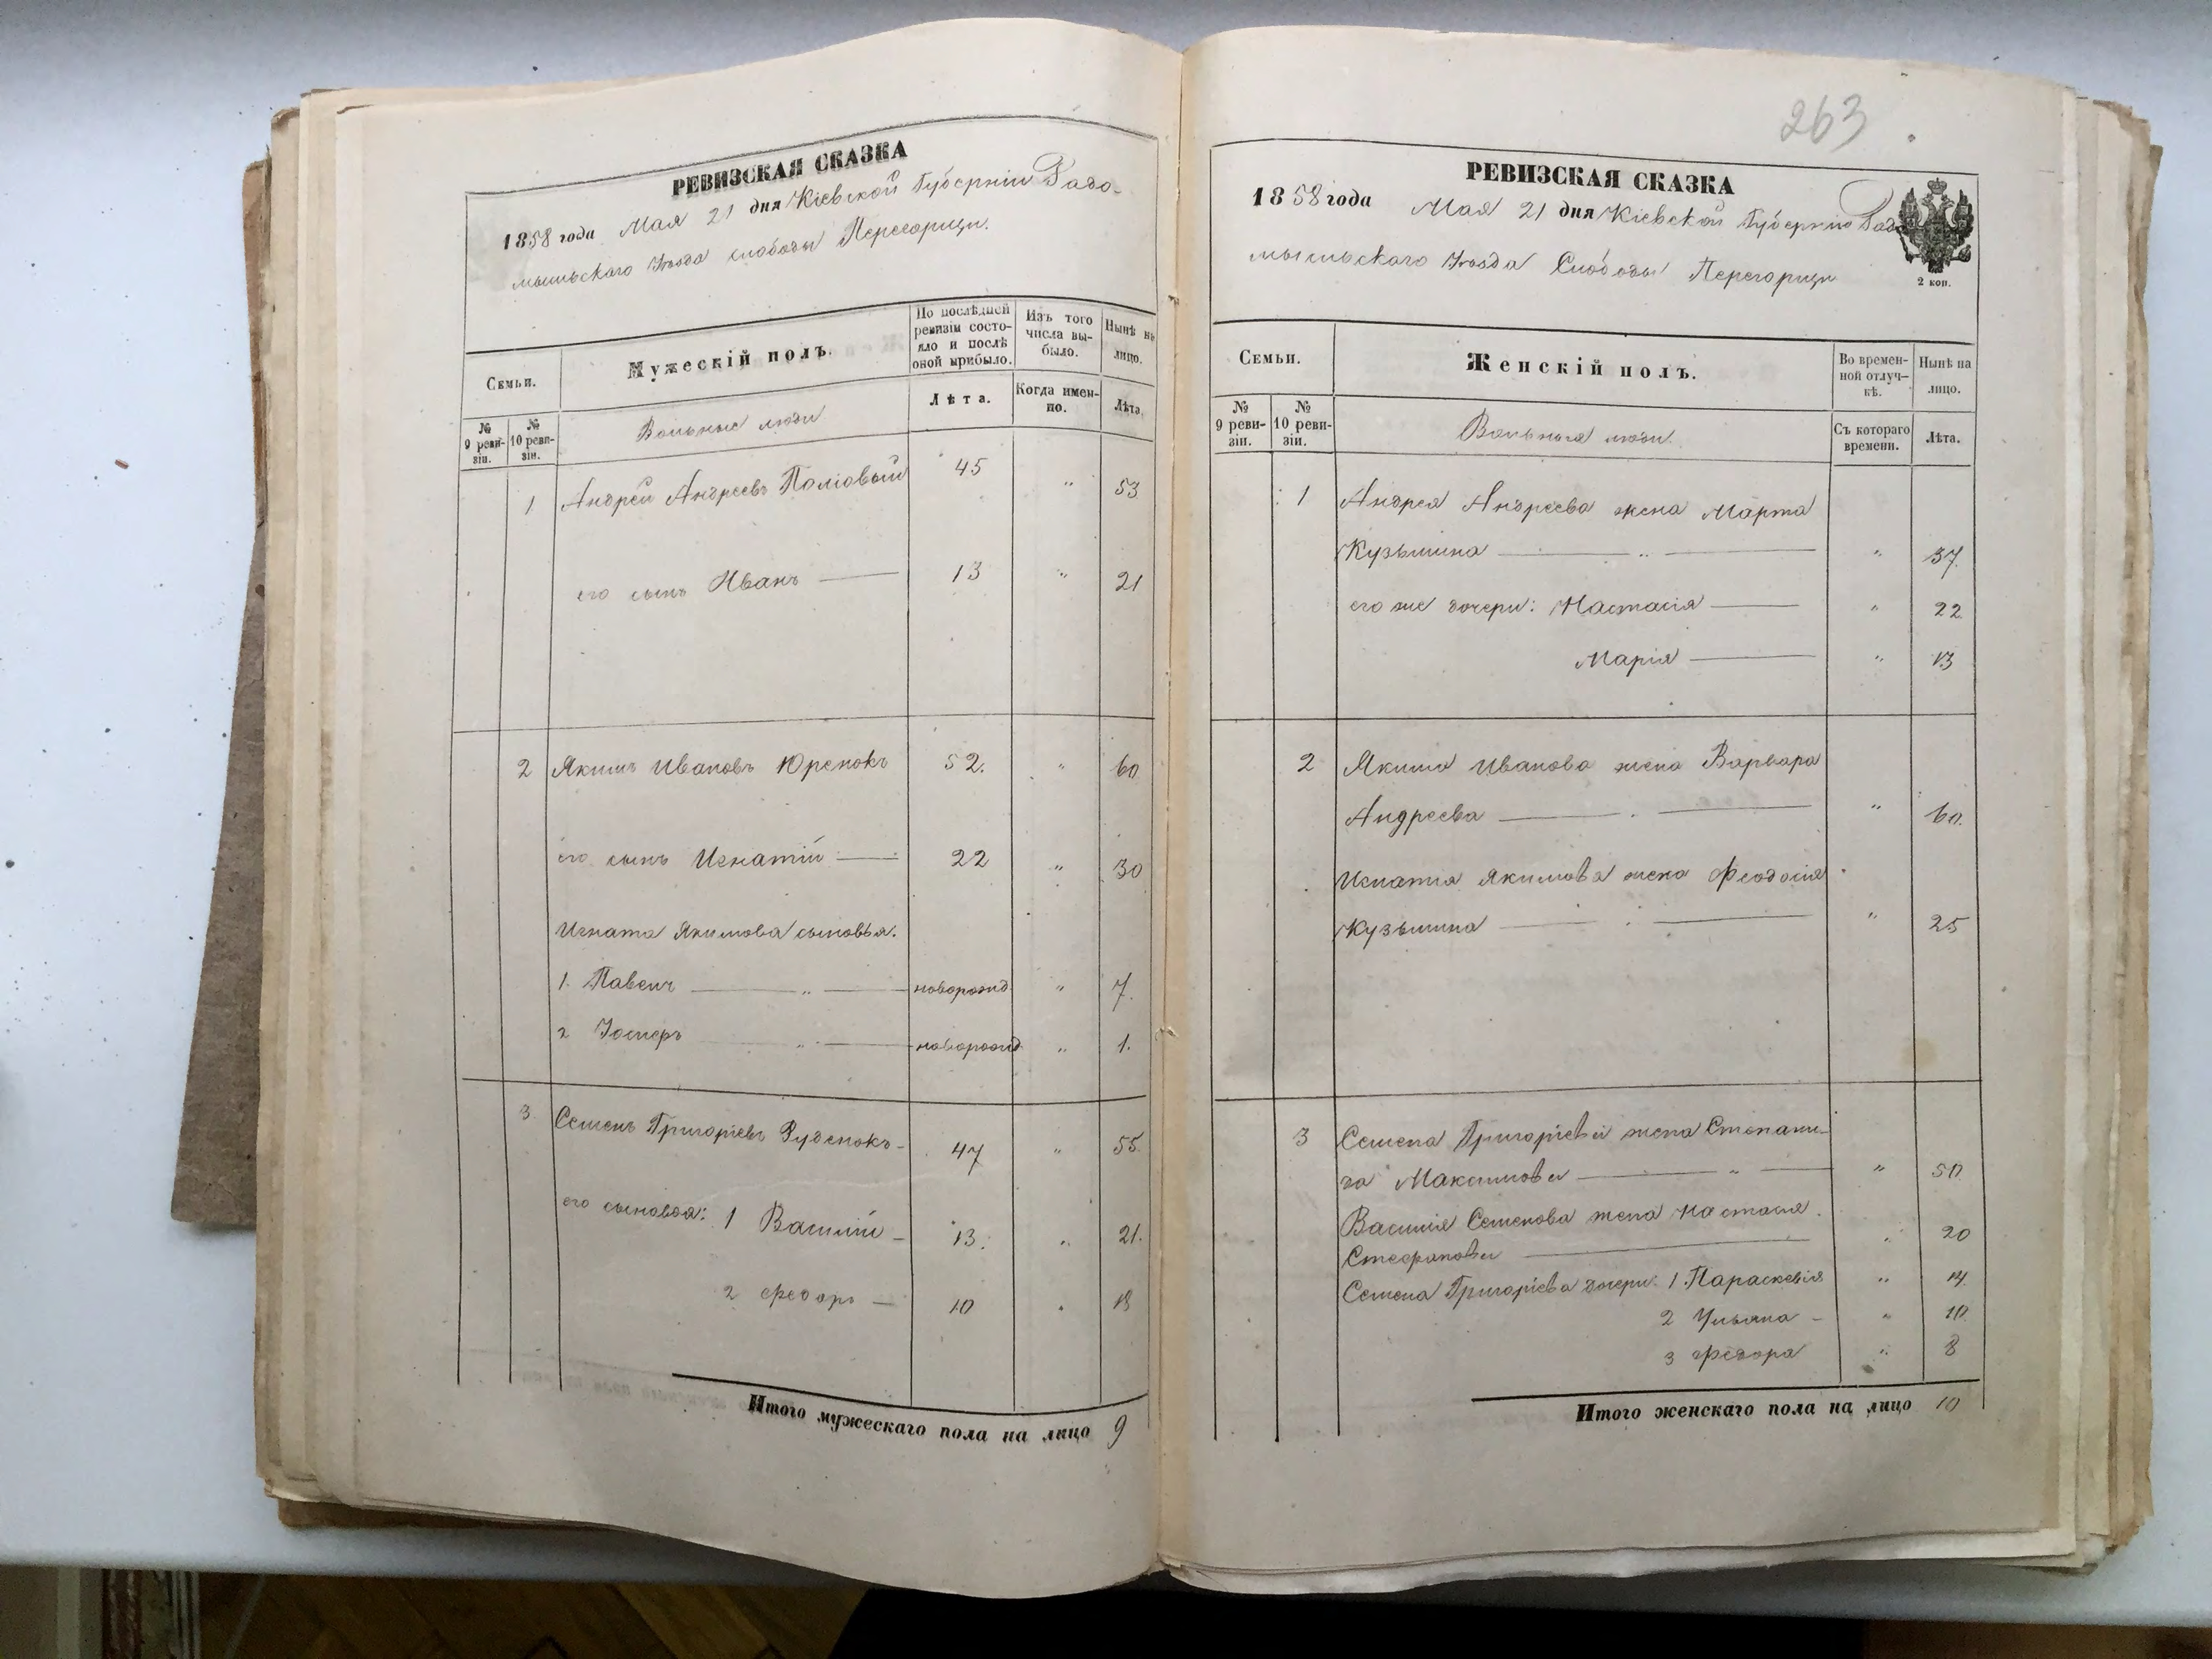 РЕВИЗСКАЯ СКАЗКА
1858 года Мая 21 дня Кіевской Губерніи Радо-
мысльскаго Уѣзда слободы
Семьи.
Мужескій полъ.
По послѣдней ревизіи состояло и послѣ оной прибыло.
Изъ того числа выбыло.
Нынѣ на лицо.
№ 9 ревизіи.
№ 10 ревизіи.
Вольные люди
Лѣта.
Когда именно.
Лѣта.
1 Андрей Андреевъ 45 " 53
его сынъ Иванъ 13 " 21
2 Якимъ Ивановъ Юренокъ 52. " 60
его сынъ Игнатій 22 " 30
Игната Якимова сыновья.
1. Павелъ " новорожд " 7.
2 " новорожд " 1.
3 Семенъ Григоріевъ Руденокъ 47 " 55
его сыновья: 1 Василій 13. " 21.
2 Федоръ 10 " 18
Итого мужескаго пола на лицо 9
263
РЕВИЗСКАЯ СКАЗКА
1858 года Мая 21 дня Кіевской Губерніи Радо
мысльскаго Уѣзда Слободы
2 коп.
Семьи.
Женскій полъ.
Во временной отлучкѣ.
Нынѣ на лицо.
№ 9 ревизіи.
№ 10 ревизіи.
Вольныя люди
Съ котораго времени.
Лѣта.
1 Андрея Андреева жена Марта
Кузьмина " 37.
его же дочери: Настасія " 22
Марія " 13
2 Якима Иванова жена Варвара
Андреева " 60.
Игнатія Якимова жена Феодосія
Кузьмина " 25
3 Семена Григоріева жена Степани-
да Максимова " 50
Василія Семенова жена Настасія
Стефанова " 20
Семена Григоріева дочери: 1 Параскевія " 14
2 Ульяна " 10.
3 Федора " 8
Итого женскаго пола на лицо 10